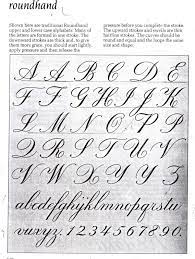 roundhand
Shown here are traditional Roundhand
upper and lower case alphabets. Many of
the letters are formed in one stroke. The
downward strokes are thick and, to give
them more grace, you should start lightly,
apply pressure and then release the
pressure before you complete the stroke.
The upward strokes and swirls are thin
hairline strokes. The curves should be
round and equal and loops the same
size and shape.
A B C D E
F G H I J K
L M N O P Q
R S T U V
W X Y Z
abcdefghijklmnopq
rstuvwxyz. 1234567890.